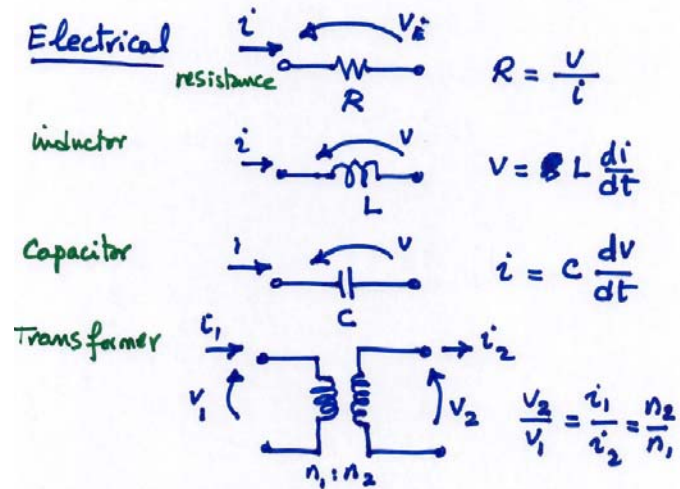 Electrical i V
resistance R R = v/i
inductor i v L V = L di/dt
Capacitor i v C i = C dv/dt
Transformer i₁ i₂
v₁ v₂ v₂/v₁ = i₁/i₂ = n₂/n₁
n₁ : n₂